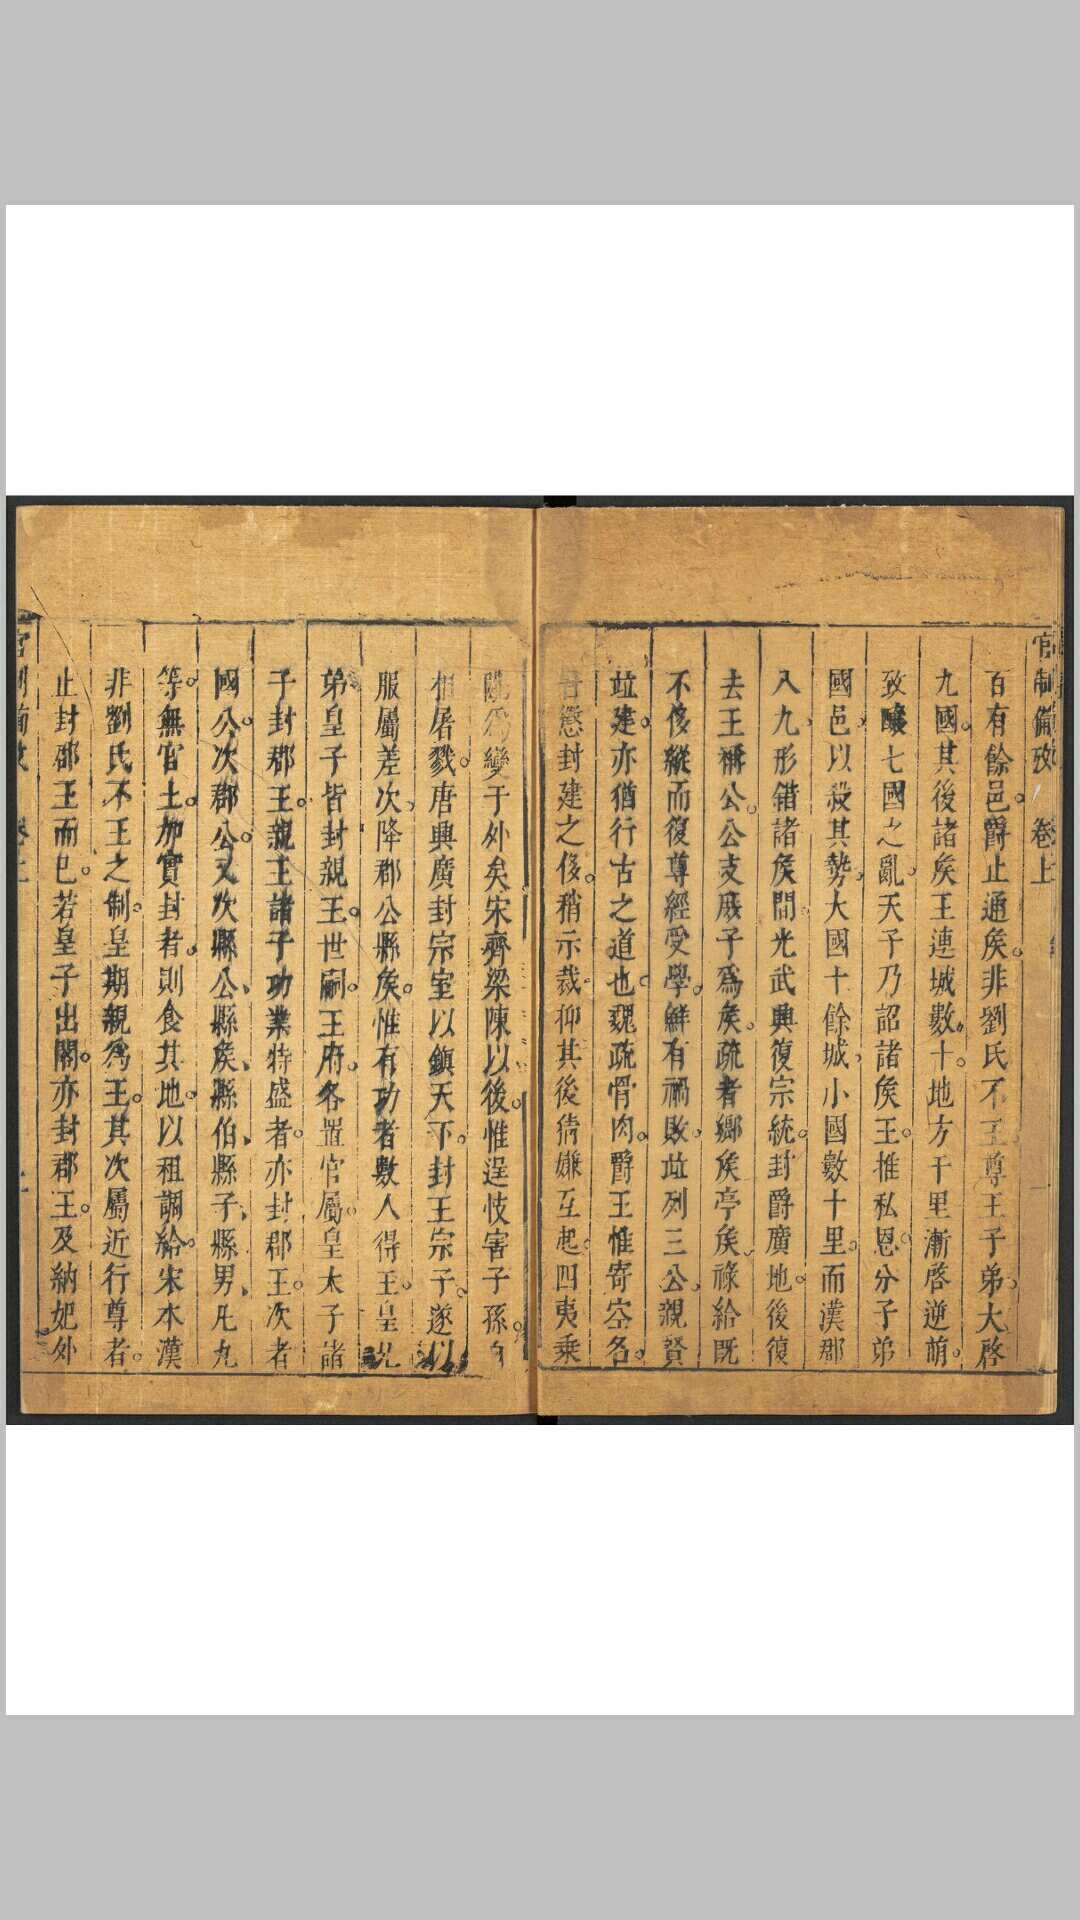 官制備攷 卷上
百有餘邑。爵止通矦。非劉氏不王。尊王子弟。大啓
九國。其後諸矦王連城數十。地方千里漸啓逆萌。
致釀七國之亂。天子乃詔諸矦王。推私恩。分子弟
國邑以殺其勢。大國十餘城。小國數十里。而漢郡
入九、形錯諸矦間。光武興復宗統。封爵廣地。後復
去王稱公。公支庶子爲矦。疏者鄉矦亭矦。祿給既
不侈縱而復尊經受學。鮮有禍敗。竝列三公。親賢
竝建。亦猶行古之道也。魏疏骨肉。爵王惟寄空名。
晉懲封建之後。稍示裁抑其後猜嫌互起。四夷乘
隙爲變于外矣宋齊梁陳以後。惟逞忮害子孫。自
相屠戮。唐興廣封宗室以鎮天下。封王宗子。遂以
服屬差次。降郡公縣矦。惟有功者數人得王。皇兄
弟皇子皆封親王。世嗣。王府。各置官屬。皇太子諸
子封郡王。親王諸子功業特盛者。亦封郡王。次者
國公。次郡公。又次縣公、縣矦、縣伯、縣子、縣男、凡九
等。無官土。加實封者。則食其地。以租調給。宋本漢
非劉氏不王之制。皇期親爲王。其次屬近行尊者。
止封郡王而已。若皇子出閣。亦封郡王。及納妃外